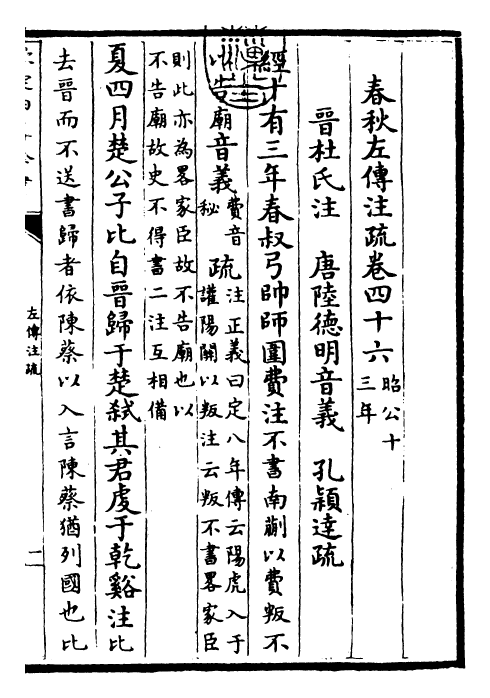 春秋左傳注疏卷四十六 昭公十三年
晉杜氏注 唐陸德明音義 孔穎達疏
經十有三年春叔弓帥師圍費注不書南蒯以費叛不
以告廟音義費音秘疏注正義曰定八年傳云陽虎入于讙陽關以叛注云叛不書畧家臣
則此亦為畧家臣故不告廟也以不告廟故史不得書二注互相備
夏四月楚公子比自晉歸于楚弑其君虔于乾谿注比
去晉而不送書歸者依陳蔡以入言陳蔡猶列國也比
左傳注疏
二